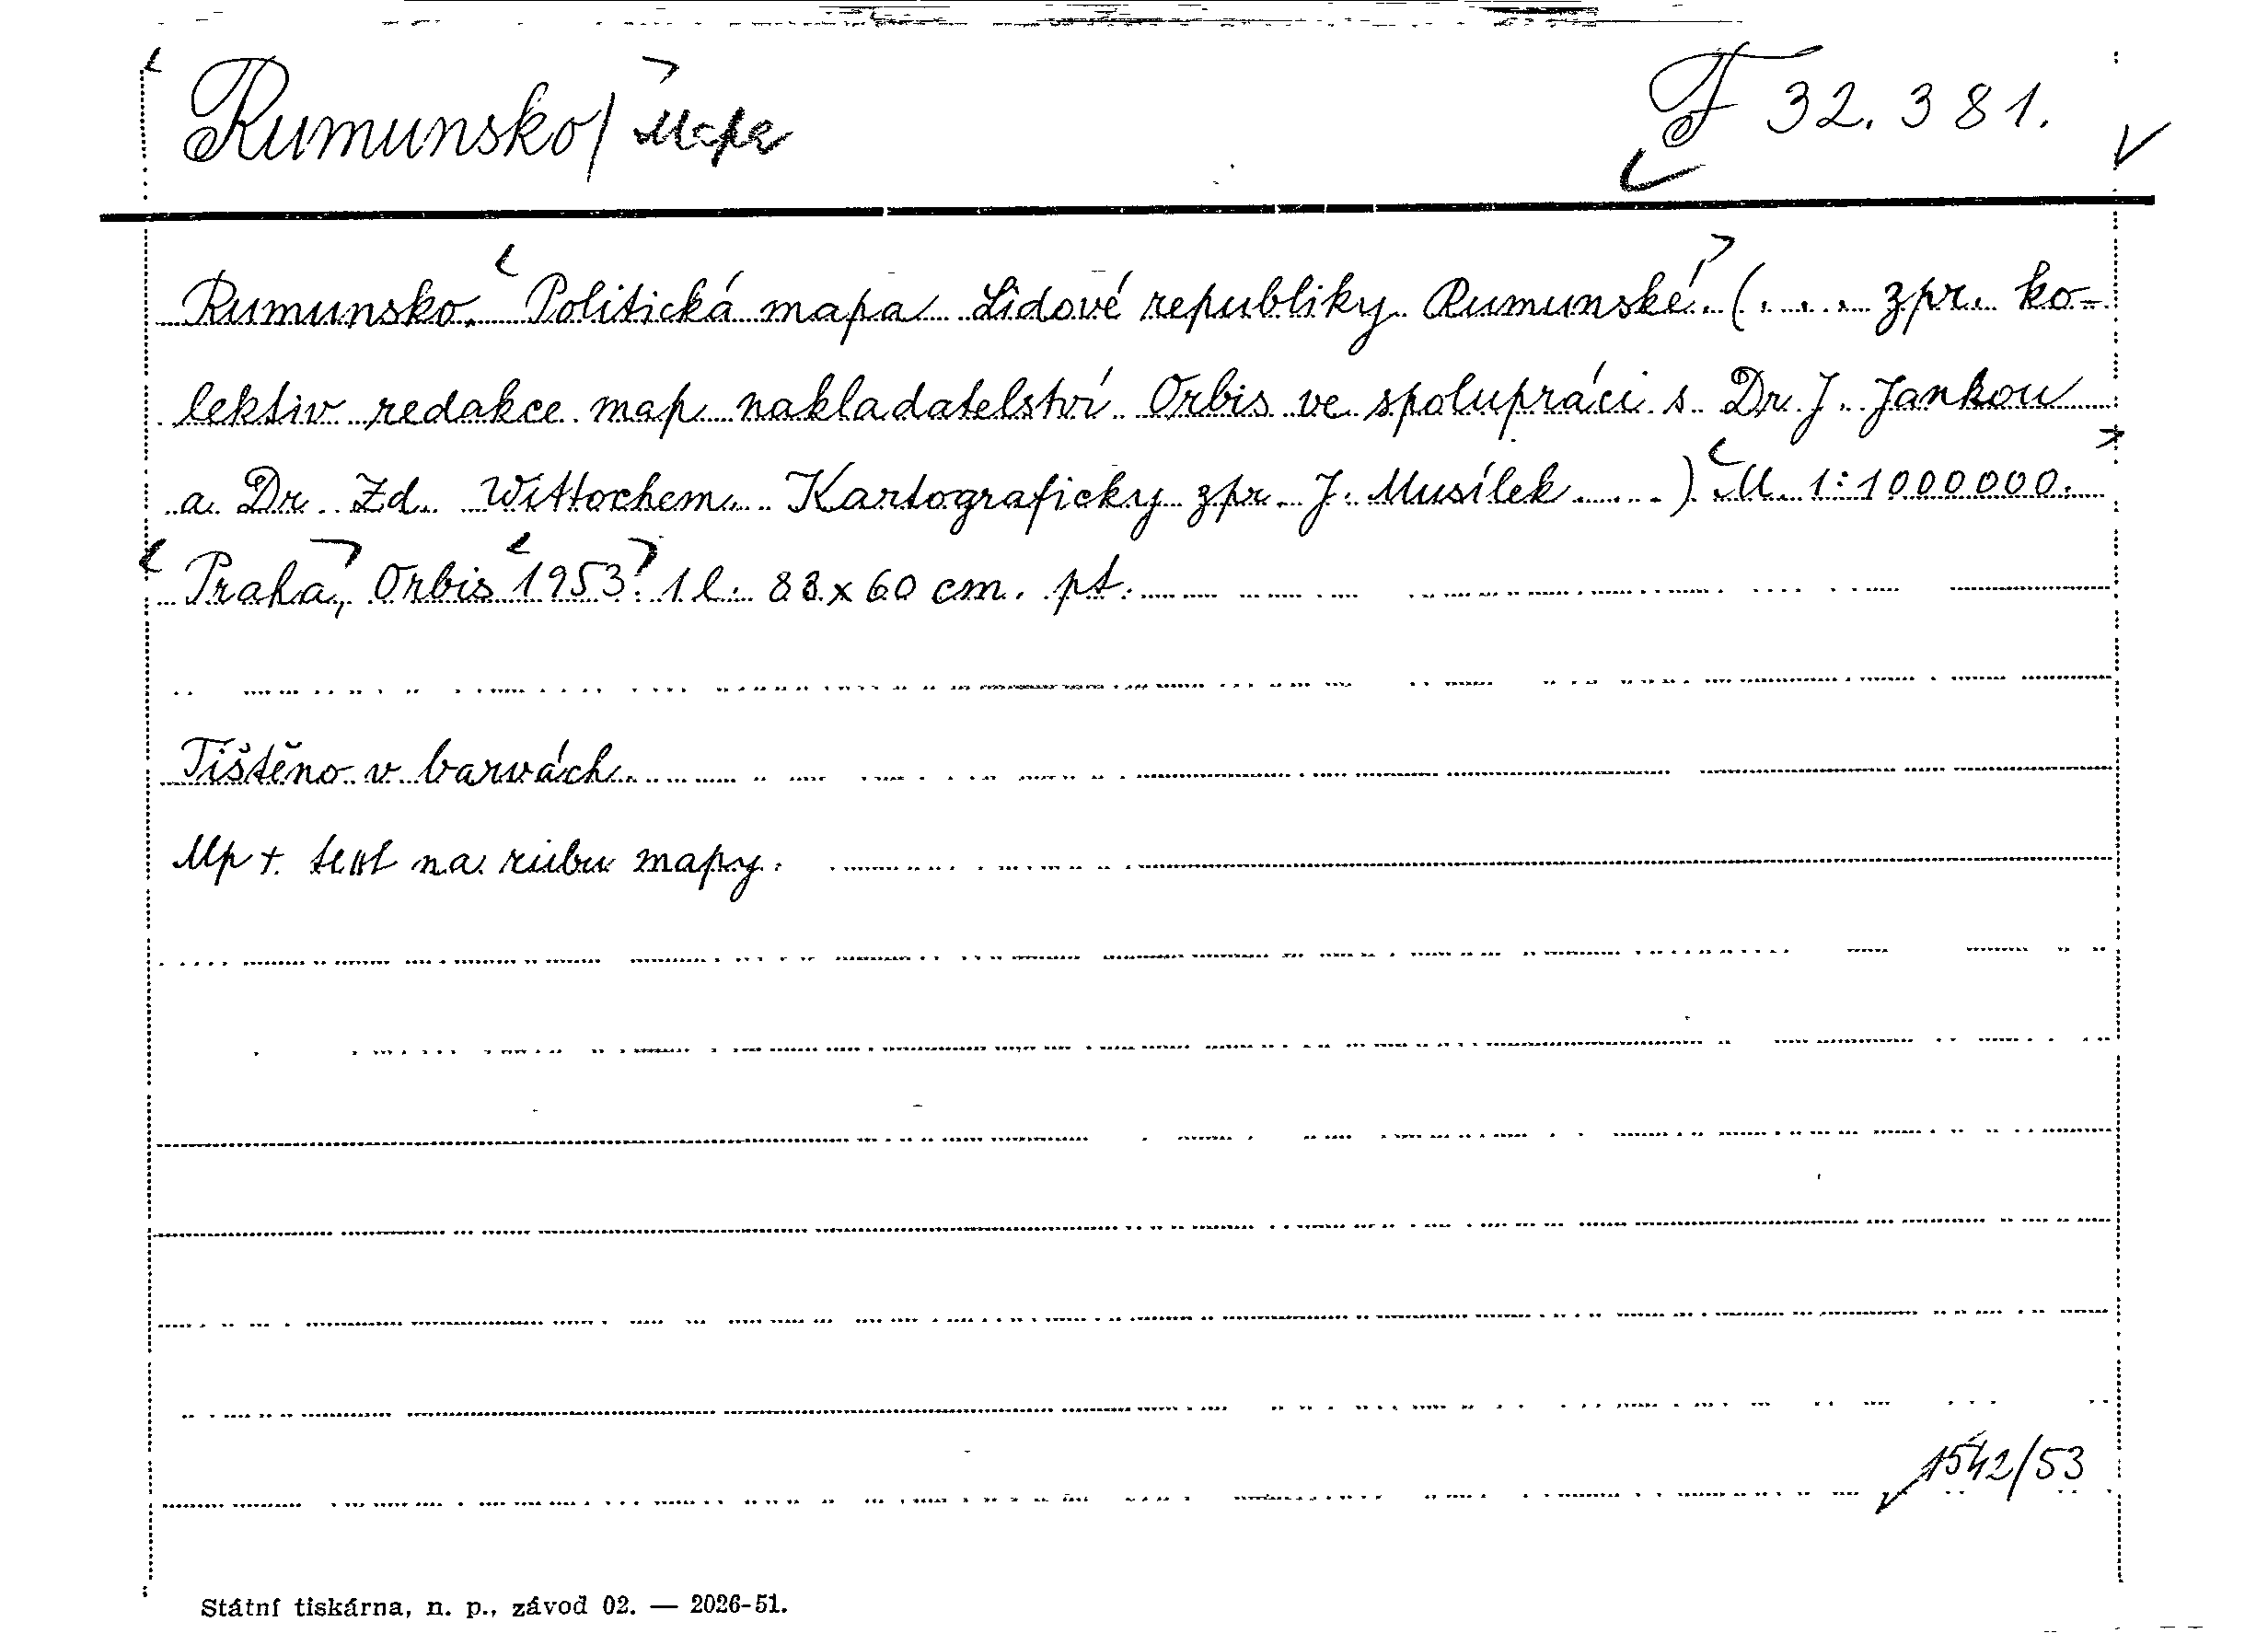 Rumunsko/ mapa F 32.381.
Rumunsko. Politická mapa Lidové republiky Rumunské. (.... zpr. ko-
lektiv redakce map nakladatelství Orbis ve spolupráci s Dr. J. Jankou
a Dr. Zd. Wittochem. Kartograficky zpr. J. Musílek ....) M. 1:1000000.
Praha, Orbis 1953. 1 l. 83x60 cm. pt.
Tištěno v barvách.
Mp + text na rubu mapy.
1542/53
Státní tiskárna, n. p., závod 02. — 2026-51.